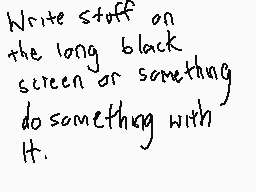 Write stuff on
the long black
screen or something
do something with
It.